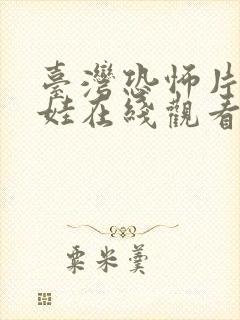 臺灣恐怖片
娃在綫觀看
粟米羹